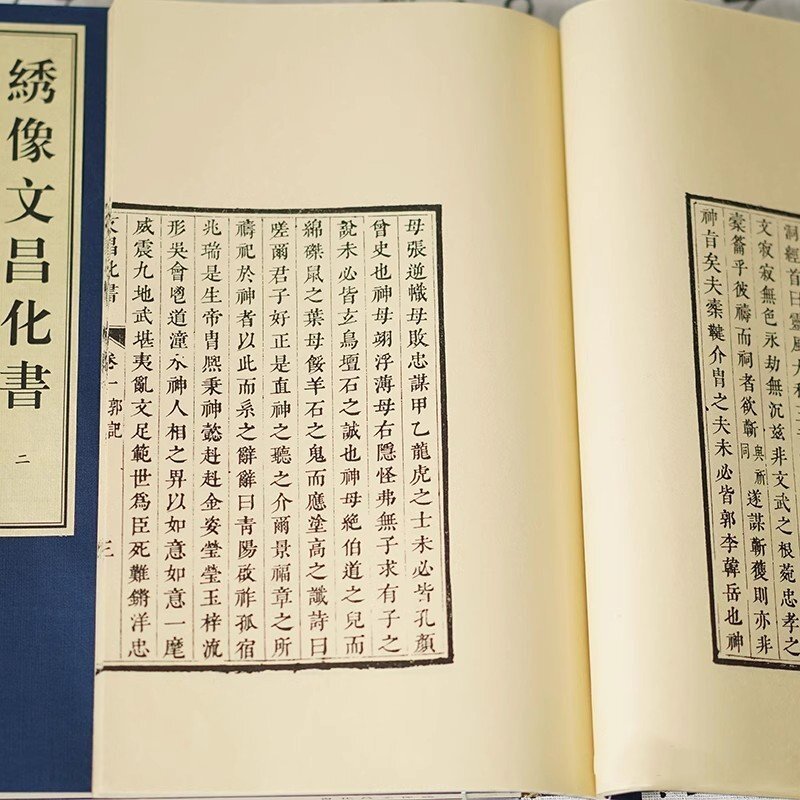 綉像文昌化書
二
洞經首曰靈風大和
文寂寂無色永劫無沉兹非文武之根菀忠孝之
橐籥乎彼禱而祠者欲蘄與祈同遂謀蘄獲則亦非
神旨矣夫櫜鞬介胄之夫未必皆郭李韓岳也神
母張逆幟母敗忠謀甲乙龍虎之士未必皆孔顏
曾史也神母翊浮薄母右隱怪弗無子求有子之
說未必皆玄鳥壇石之誠也神母絶伯道之兒而
綿磔鼠之葉母餒羊石之鬼而應堂高之讖詩曰
嗟爾君子好正是直神之聽之介爾景福章之所
禱祀於神者以此而系之辭辭曰青陽啟祚孤宿
兆瑞是生帝胄熙秉神懿赳赳金姿瑩瑩玉梓流
形吳會鬯道潼水神人相之畀以如意如意一麾
威震九地武堪夷亂文足範世爲臣死難鏘洋忠
文昌化書
卷一
郭記
三